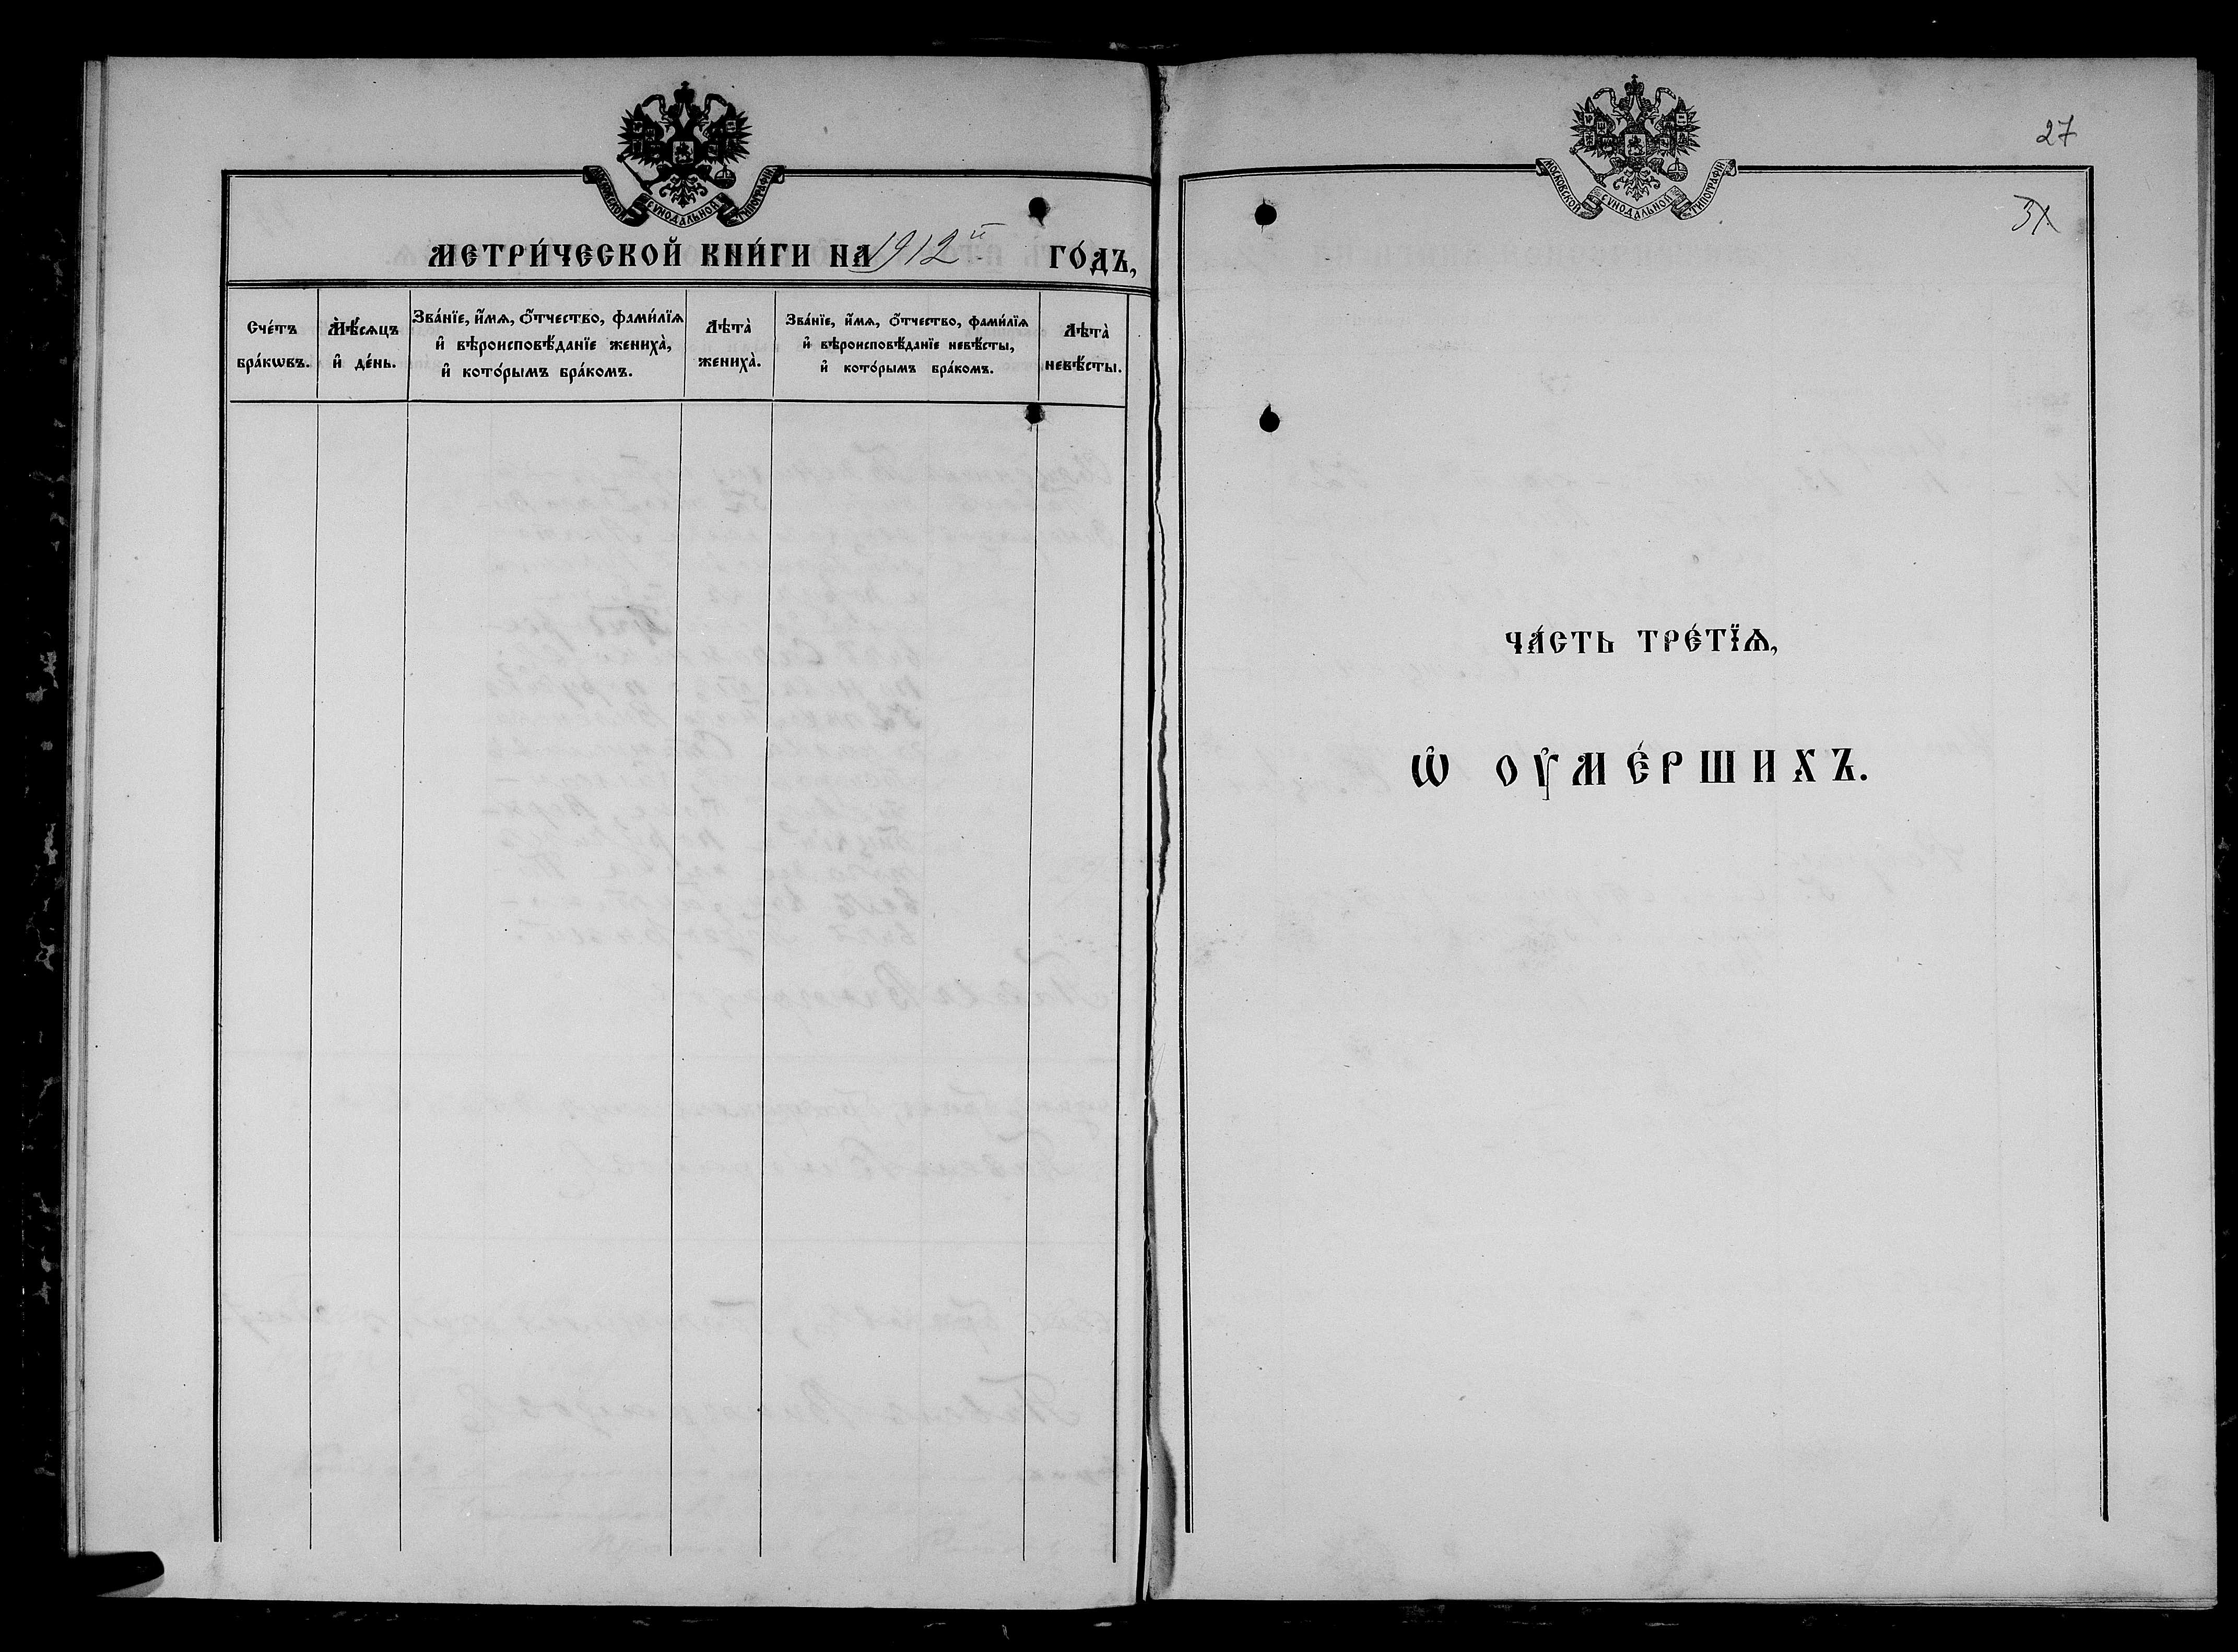 МОСКОВСКОЙ СѴНОДАЛЬНОЙ ТИПОГРАФІИ
МЕТРИ́ЧЕСКОЙ КНИ́ГИ НА 1912й ГО́ДЪ,
Сче́тъ бра́кѡвъ.
Мѣ́сѧцъ и҆ де́нь.
Зва́нїе, и҆́мѧ, ѻ҆́тчество, фами́лїѧ
и҆ вѣроисповѣ́данїе жениха̀,
и҆ кото́рымъ бра́комъ.
Лѣта̀ жениха̀.
Зва́нїе, и҆́мѧ, ѻ҆́тчество, фами́лїѧ
и҆ вѣроисповѣ́данїе невѣ́сты,
и҆ кото́рымъ бра́комъ.
Лѣта̀ невѣ́сты.
27
МОСКОВСКОЙ СѴНОДАЛЬНОЙ ТИПОГРАФІИ
ЧА́СТЬ ТРЕ́ТЇѦ,
Ѡ҆ ОУ҆МЕ́РШИХЪ.